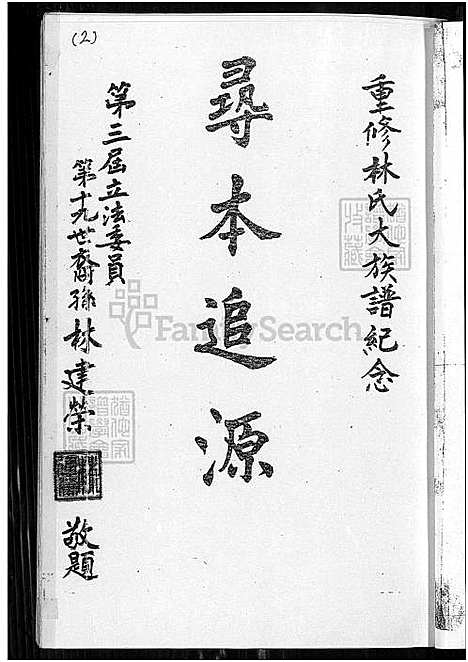 重修林氏大族譜紀念
尋本追源
第三屆立法委員
第十九世裔孫林建榮
敬題
(2)
FamilySearch